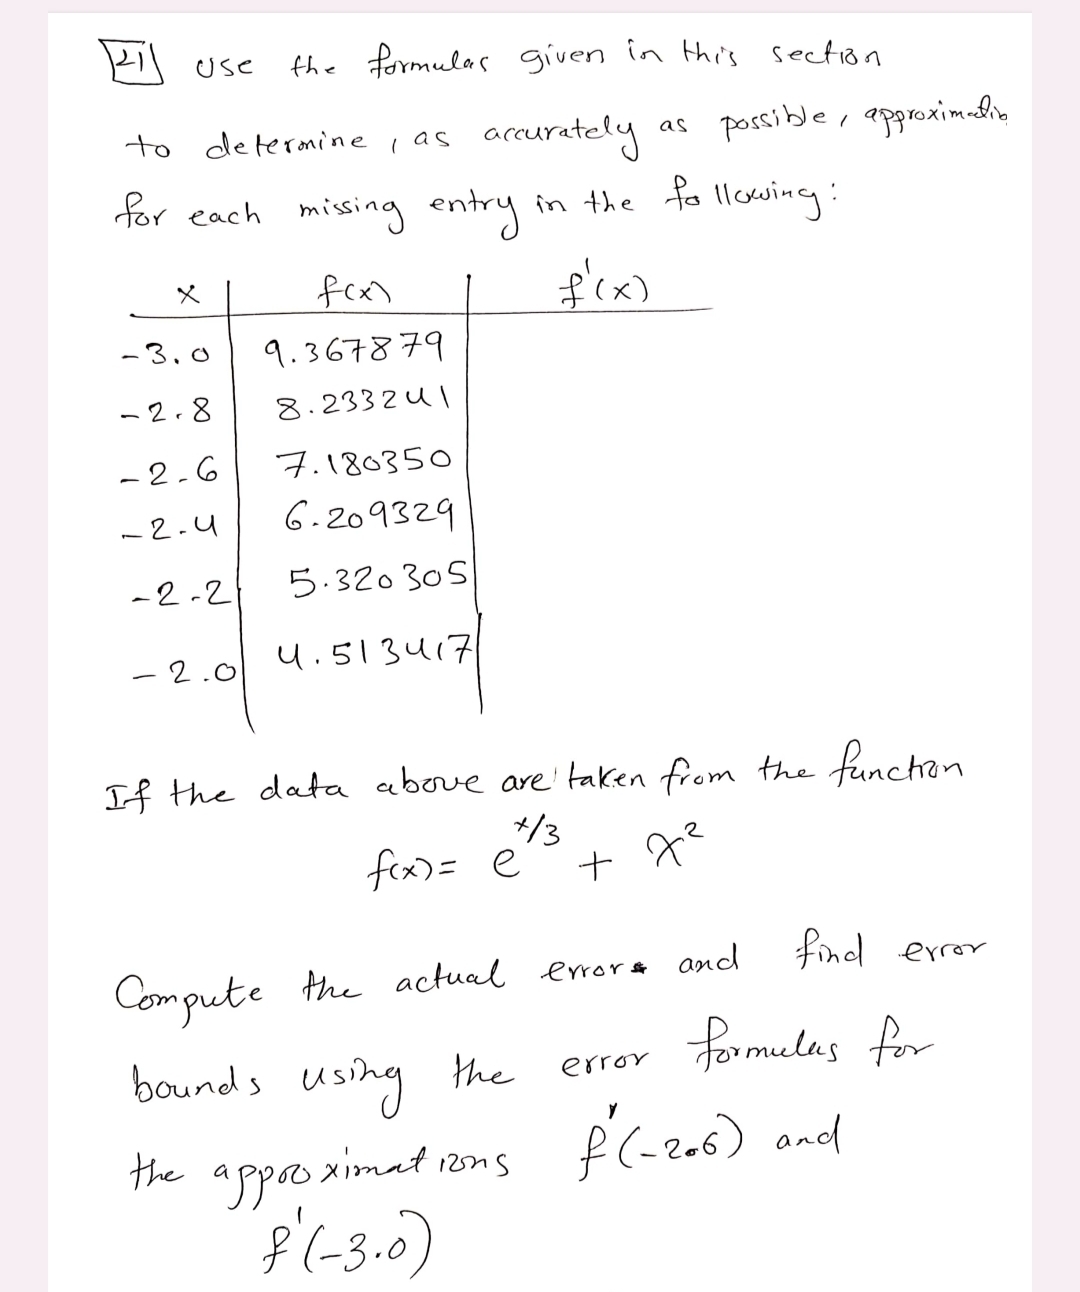 21 Use the formulas given in this section
to determine, as accurately as possible, approximatio
for each missing entry in the following:
x f(x) f'(x)
-3.0 9.367879
-2.8 8.233241
-2.6 7.180350
-2.4 6.209329
-2.2 5.320305
-2.0 4.513417
If the data above are taken from the function
f(x) = e^{x/3} + x^2
Compute the actual errors and find error
bounds using the error formulas for
the approximations f'(-2.6) and
f'(-3.0)